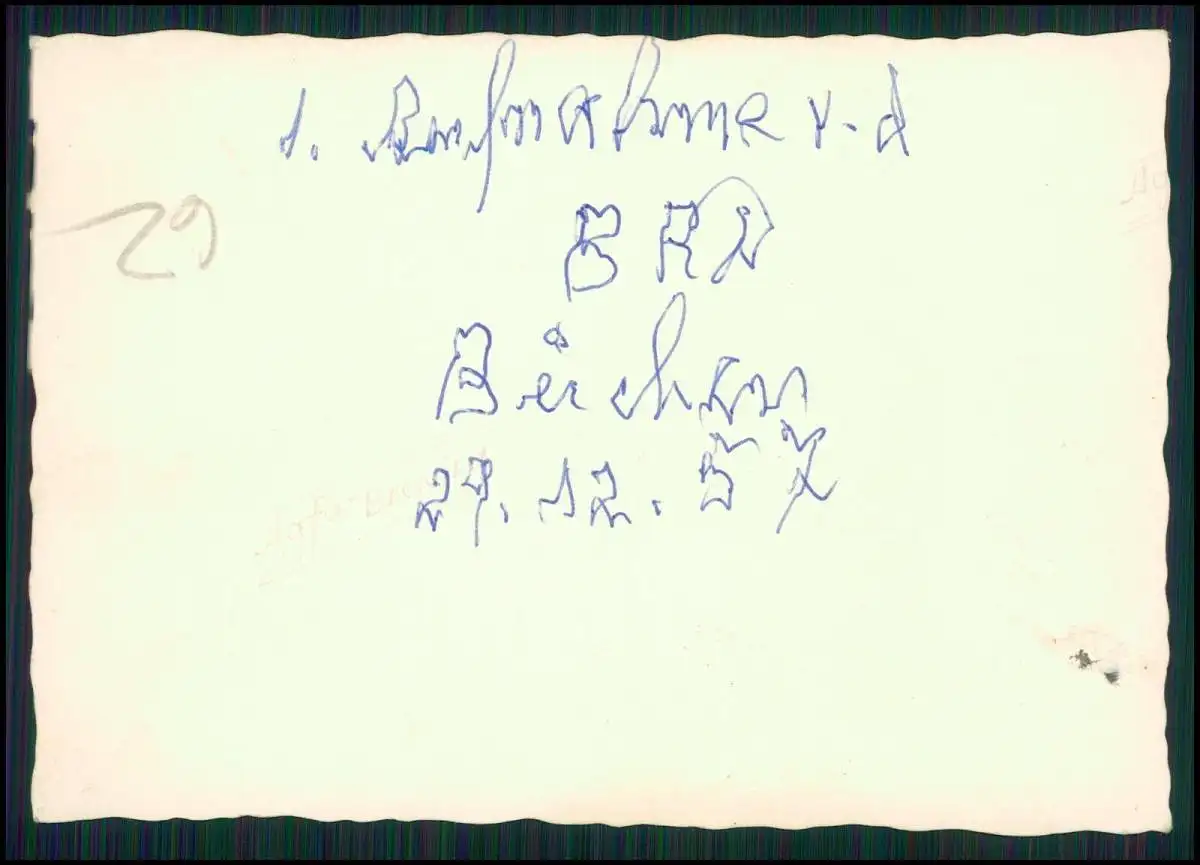 1. Aufnahme v. d
BRD
29
27.12.57